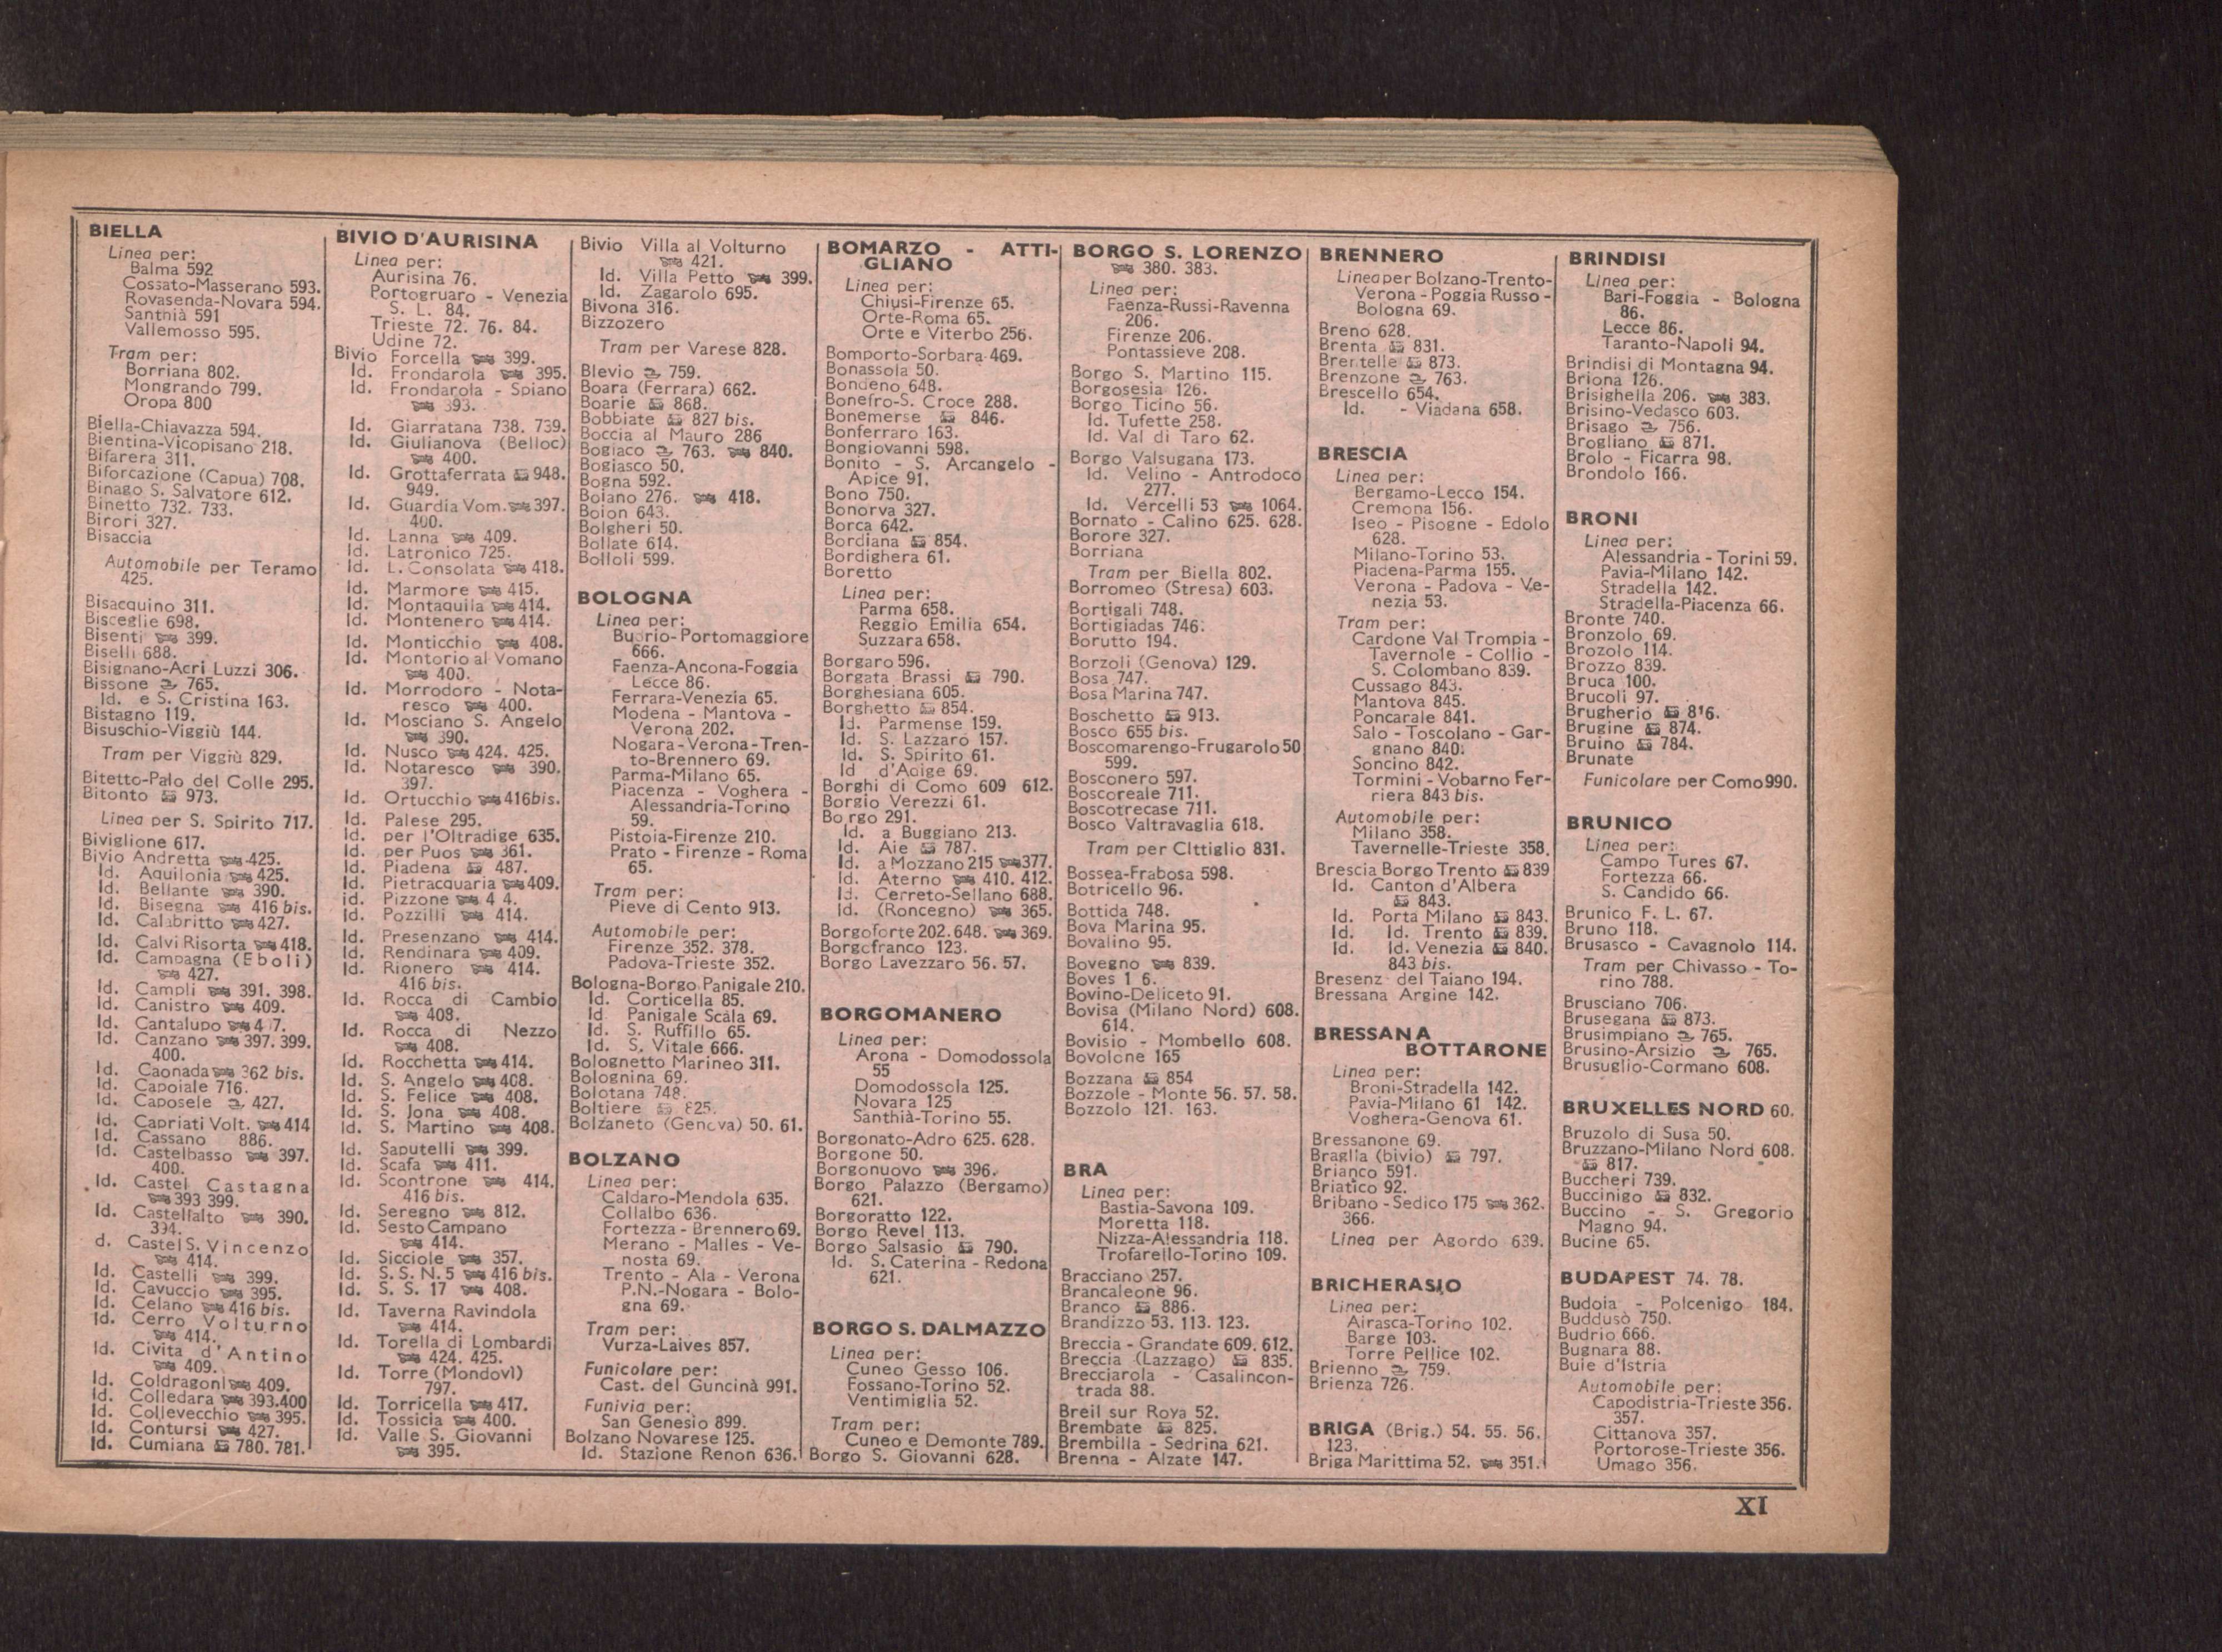 BIELLA
Linea per:
Balma 592
Cossato-Masserano 593.
Rovasenda-Novara 594.
Santhià 591
Vallemosso 595.
Tram per:
Borriana 802.
Mongrando 799.
Oropa 800
Biella-Chiavazza 594.
Bientina-Vicopisano 218.
Bifarera 311.
Biforcazione (Capua) 708.
Binago S. Salvatore 612.
Binetto 732. 733.
Birori 327.
Bisaccia
Automobile per Teramo
425.
Bisacquino 311.
Bisceglie 698.
Bisenti 399.
Biselli 688.
Bisignano-Acri Luzzi 306.
Bissone 765.
Id. e S. Cristina 163.
Bistagno 119.
Bisuschio-Viggiù 144.
Tram per Viggiù 829.
Bitetto-Palo del Colle 295.
Bitonto 973.
Linea per S. Spirito 717.
Biviglione 617.
Bivio Andretta 425.
Id. Aquilonia 425.
Id. Bellante 390.
Id. Bisegna 416 bis.
Id. Calabritto 427.
Id. Calvi Risorta 418.
Id. Campagna (Eboli)
427.
Id. Campli 391. 398.
Id. Canistro 409.
Id. Cantalupo 4 7.
Id. Canzano 397. 399.
400.
Id. Caonada 362 bis.
Id. Capoiale 716.
Id. Caposele 427.
Id. Capriati Volt. 414
Id. Cassano 886.
Id. Castelbasso 397.
400.
Id. Castel Castagna
393 399.
Id. Castelfalto 390.
394.
d. Castel S. Vincenzo
414.
Id. Castelli 399.
Id. Cavuccio 395.
Id. Celano 416 bis.
Id. Cerro Volturno
414.
Id. Civita d'Antino
409.
Id. Coldragoni 409.
Id. Colledara 393.400
Id. Collevecchio 395.
Id. Contursi 427.
Id. Cumiana 780. 781.
BIVIO D'AURISINA
Linea per:
Aurisina 76.
Portogruaro - Venezia
S. L. 84.
Trieste 72. 76. 84.
Udine 72.
Bivio Forcella 399.
Id. Frondarola 395.
Id. Frondarola - Spiano
393.
Id. Giarratana 738. 739.
Id. Giulianova (Belloc)
400.
Id. Grottaferrata 948.
949.
Id. Guardia Vom. 397.
400.
Id. Lanna 409.
Id. Latronico 725.
Id. L. Consolata 418.
Id. Marmore 415.
Id. Montaquila 414.
Id. Montenero 414.
Id. Monticchio 408.
Id. Montorio al Vomano
400.
Id. Morrodoro - Nota-
resco 400.
Id. Mosciano S. Angelo
390.
Id. Nusco 424. 425.
Id. Notaresco 390.
397.
Id. Ortucchio 416bis.
Id. Palese 295.
Id. per l'Oltradige 635.
Id. per Puos 361.
Id. Piadena 487.
Id. Pietracquaria 409.
id. Pizzone 4 4.
Id. Pozzilli 414.
Id. Presenzano 414.
Id. Rendinara 409.
Id. Rionero 414.
416 bis.
Id. Rocca di Cambio
408.
Id. Rocca di Nezzo
408.
Id. Rocchetta 414.
Id. S. Angelo 408.
Id. S. Felice 408.
Id. S. Jona 408.
Id. S. Martino 408.
Id. Saputelli 399.
Id. Scafa 411.
Id. Scontrone 414.
416 bis.
Id. Seregno 812.
Id. Sesto Campano
414.
Id. Sicciole 357.
Id. S. S. N. 5 416 bis.
Id. S. S. 17 408.
Id. Taverna Ravindola
414.
Id. Torella di Lombardi
424. 425.
Id. Torre (Mondovì)
797.
Id. Torricella 417.
Id. Tossicia 400.
Id. Valle S. Giovanni
395.
Bivio Villa al Volturno
421.
Id. Villa Petto 399.
Id. Zagarolo 695.
Bivona 316.
Bizzozero
Tram per Varese 828.
Blevio 759.
Boara (Ferrara) 662.
Boarie 868.
Bobbiate 827 bis.
Boccia al Mauro 286
Bogiaco 763. 840.
Bogiasco 50.
Bogna 592.
Boiano 276. 418.
Boion 643.
Bolgheri 50.
Bollate 614.
Bolloli 599.
BOLOGNA
Linea per:
Budrio-Portomaggiore
666.
Faenza-Ancona-Foggia
Lecce 86.
Ferrara-Venezia 65.
Modena - Mantova -
Verona 202.
Nogara-Verona-Tren-
to-Brennero 69.
Parma-Milano 65.
Piacenza - Voghera -
Alessandria-Torino
59.
Pistoia-Firenze 210.
Prato - Firenze - Roma
65.
Tram per:
Pieve di Cento 913.
Automobile per:
Firenze 352. 378.
Padova-Trieste 352.
Bologna-Borgo Panigale 210.
Id. Corticella 85.
Id Panigale Scala 69.
Id. S. Ruffillo 65.
Id. S. Vitale 666.
Bolognetto Marineo 311.
Bolognina 69.
Bolotana 748.
Boltiere 825.
Bolzaneto (Genova) 50. 61.
BOLZANO
Linea per:
Caldaro-Mendola 635.
Collalbo 636.
Fortezza - Brennero 69.
Merano - Malles - Ve-
nosta 69.
Trento - Ala - Verona
P.N.-Nogara - Bolo-
gna 69.
Tram per:
Vurza-Laives 857.
Funicolare per:
Cast. del Guncinà 991.
Funivia per:
San Genesio 899.
Bolzano Novarese 125.
Id. Stazione Renon 636.
BOMARZO - ATTI-
GLIANO
Linea per:
Chiusi-Firenze 65.
Orte-Roma 65.
Orte e Viterbo 256.
Bomporto-Sorbara 469.
Bonassola 50.
Bondeno 648.
Bonefro-S. Croce 288.
Bonemerse 846.
Bonferraro 163.
Bongiovanni 598.
Bonito - S. Arcangelo -
Apice 91.
Bono 750.
Bonorva 327.
Borca 642.
Bordiana 854.
Bordighera 61.
Boretto
Linea per:
Parma 658.
Reggio Emilia 654.
Suzzara 658.
Borgaro 596.
Borgata Brassi 790.
Borghesiana 605.
Borghetto 854.
Id. Parmense 159.
Id. S. Lazzaro 157.
Id. S. Spirito 61.
Id d'Adige 69.
Borghi di Como 609 612.
Borgio Verezzi 61.
Borgo 291.
Id. a Buggiano 213.
Id. Aie 787.
Id. a Mozzano 215 377.
Id. Aterno 410. 412.
Id. Cerreto-Sellano 688.
Id. (Roncegno) 365.
Borgoforte 202. 648. 369.
Borgofranco 123.
Borgo Lavezzaro 56. 57.
BORGOMANERO
Linea per:
Arona - Domodossola
55
Domodossola 125.
Novara 125
Santhià-Torino 55.
Borgonato-Adro 625. 628.
Borgone 50.
Borgonuovo 396.
Borgo Palazzo (Bergamo)
621.
Borgoratto 122.
Borgo Revel 113.
Borgo Salsasio 790.
Id. S. Caterina - Redona
621.
BORGO S. DALMAZZO
Linea per:
Cuneo Gesso 106.
Fossano-Torino 52.
Ventimiglia 52.
Tram per:
Cuneo e Demonte 789.
Borgo S. Giovanni 628.
BORGO S. LORENZO
380. 383.
Linea per:
Faenza-Russi-Ravenna
206.
Firenze 206.
Pontassieve 208.
Borgo S. Martino 115.
Borgosesia 126.
Borgo Ticino 56.
Id. Tufette 258.
Id. Val di Taro 62.
Borgo Valsugana 173.
Id. Velino - Antrodoco
277.
Id. Vercelli 53 1064.
Bornato - Calino 625. 628.
Borore 327.
Borriana
Tram per Biella 802.
Borromeo (Stresa) 603.
Bortigali 748.
Bortigiadas 746.
Borutto 194.
Borzoli (Genova) 129.
Bosa 747.
Bosa Marina 747.
Boschetto 913.
Bosco 655 bis.
Boscomarengo-Frugarolo 50
599.
Bosconero 597.
Boscoreale 711.
Boscotrecase 711.
Bosco Valtravaglia 618.
Tram per CIttiglio 831.
Bossea-Frabosa 598.
Botricello 96.
Bottida 748.
Bova Marina 95.
Bovalino 95.
Bovegno 839.
Boves 1 6.
Bovino-Deliceto 91.
Bovisa (Milano Nord) 608.
614.
Bovisio - Mombello 608.
Bovolone 165
Bozzana 854
Bozzole - Monte 56. 57. 58.
Bozzolo 121. 163.
BRA
Linea per:
Bastia-Savona 109.
Moretta 118.
Nizza-Alessandria 118.
Trofarello-Torino 109.
Bracciano 257.
Brancaleone 96.
Branco 886.
Brandizzo 53. 113. 123.
Breccia - Grandate 609. 612.
Breccia (Lazzago) 835.
Brecciarola - Casalincon-
trada 88.
Breil sur Roya 52.
Brembate 825.
Brembilla - Sedrina 621.
Brenna - Alzate 147.
BRENNERO
Linea per Bolzano-Trento-
Verona - Poggia Russo -
Bologna 69.
Breno 628.
Brenta 831.
Brentelle 873.
Brenzone 763.
Brescello 654.
Id. - Viadana 658.
BRESCIA
Linea per:
Bergamo-Lecco 154.
Cremona 156.
Iseo - Pisogne - Edolo
628.
Milano-Torino 53.
Piadena-Parma 155.
Verona - Padova - Ve-
nezia 53.
Tram per:
Cardone Val Trompia -
Tavernole - Collio -
S. Colombano 839.
Cussago 843.
Mantova 845.
Poncarale 841.
Salo - Toscolano - Gar-
gnano 840.
Soncino 842.
Tormini - Vobarno Fer-
riera 843 bis.
Automobile per:
Milano 358.
Tavernelle-Trieste 358.
Brescia Borgo Trento 839
Id. Canton d'Albera
843.
Id. Porta Milano 843.
Id. Id. Trento 839.
Id. Id. Venezia 840.
843 bis.
Bresenz del Taiano 194.
Bressana Argine 142.
BRESSANA
BOTTARONE
Linea per:
Broni-Stradella 142.
Pavia-Milano 61 142.
Voghera-Genova 61.
Bressanone 69.
Braglia (bivio) 797.
Brianco 591.
Briatico 92.
Bribano - Sedico 175 362.
366.
Linea per Agordo 639.
BRICHERASIO
Linea per:
Airasca-Torino 102.
Barge 103.
Torre Pellice 102.
Brienno 759.
Brienza 726.
BRIGA (Brig.) 54. 55. 56.
123.
Briga Marittima 52. 351.
BRINDISI
Linea per:
Bari-Foggia - Bologna
86.
Lecce 86.
Taranto-Napoli 94.
Brindisi di Montagna 94.
Briona 126.
Brisighella 206. 383.
Brisino-Vedasco 603.
Brisago 756.
Brogliano 871.
Brolo - Ficarra 98.
Brondolo 166.
BRONI
Linea per:
Alessandria - Torini 59.
Pavia-Milano 142.
Stradella 142.
Stradella-Piacenza 66.
Bronte 740.
Bronzolo 69.
Brozolo 114.
Brozzo 839.
Bruca 100.
Brucoli 97.
Brugherio 816.
Brugine 874.
Bruino 784.
Brunate
Funicolare per Como 990.
BRUNICO
Linea per:
Campo Tures 67.
Fortezza 66.
S. Candido 66.
Brunico F. L. 67.
Bruno 118.
Brusasco - Cavagnolo 114.
Tram per Chivasso - To-
rino 788.
Brusciano 706.
Brusegana 873.
Brusimpiano 765.
Brusino-Arsizio 765.
Brusuglio-Cormano 608.
BRUXELLES NORD 60.
Bruzolo di Susa 50.
Bruzzano-Milano Nord 608.
817.
Buccheri 739.
Buccinigo 832.
Buccino - S. Gregorio
Magno 94.
Bucine 65.
BUDAPEST 74. 78.
Budoia - Polcenigo 184.
Buddusò 750.
Budrio 666.
Bugnara 88.
Buie d'Istria
Automobile per:
Capodistria-Trieste 356.
357.
Cittanova 357.
Portorose-Trieste 356.
Umago 356.
XI